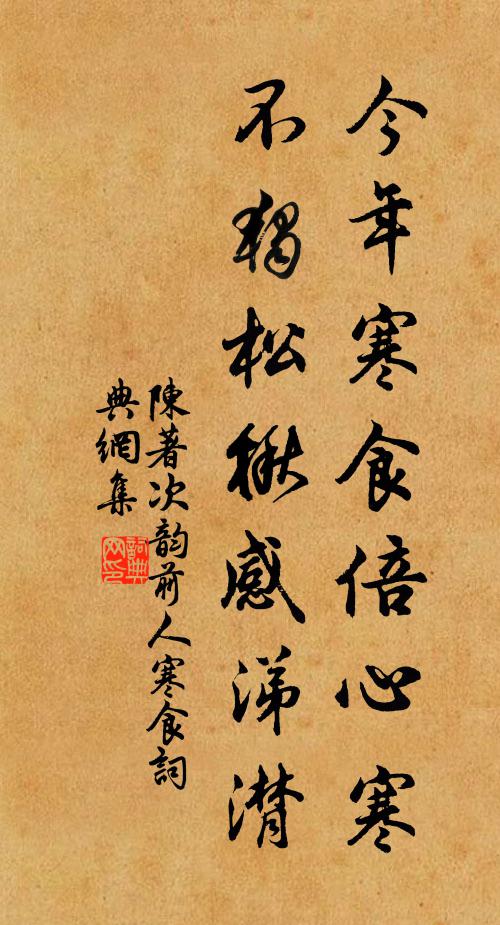 今年寒食倍心寒
不獨松楸感涕潸
陳著次韵前人寒食詞
典網集
詞典網印